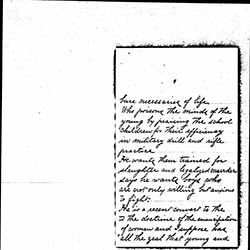 bare necessaries of life.
Who poisons the minds of the
young by praising the school
children for their efficiency
in military drill and rifle
practice
He wants them trained for
slaughter and legalized murder
says he wants boys who
are not only willing but anxious
to fight.
He is a recent convert to the
the doctrine of the emancipation
of women and I suppose has
all the zeal that young and